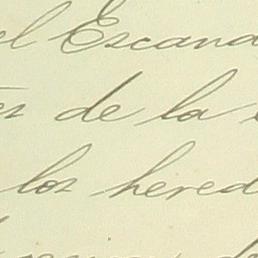 el Escand
es de la
los hered